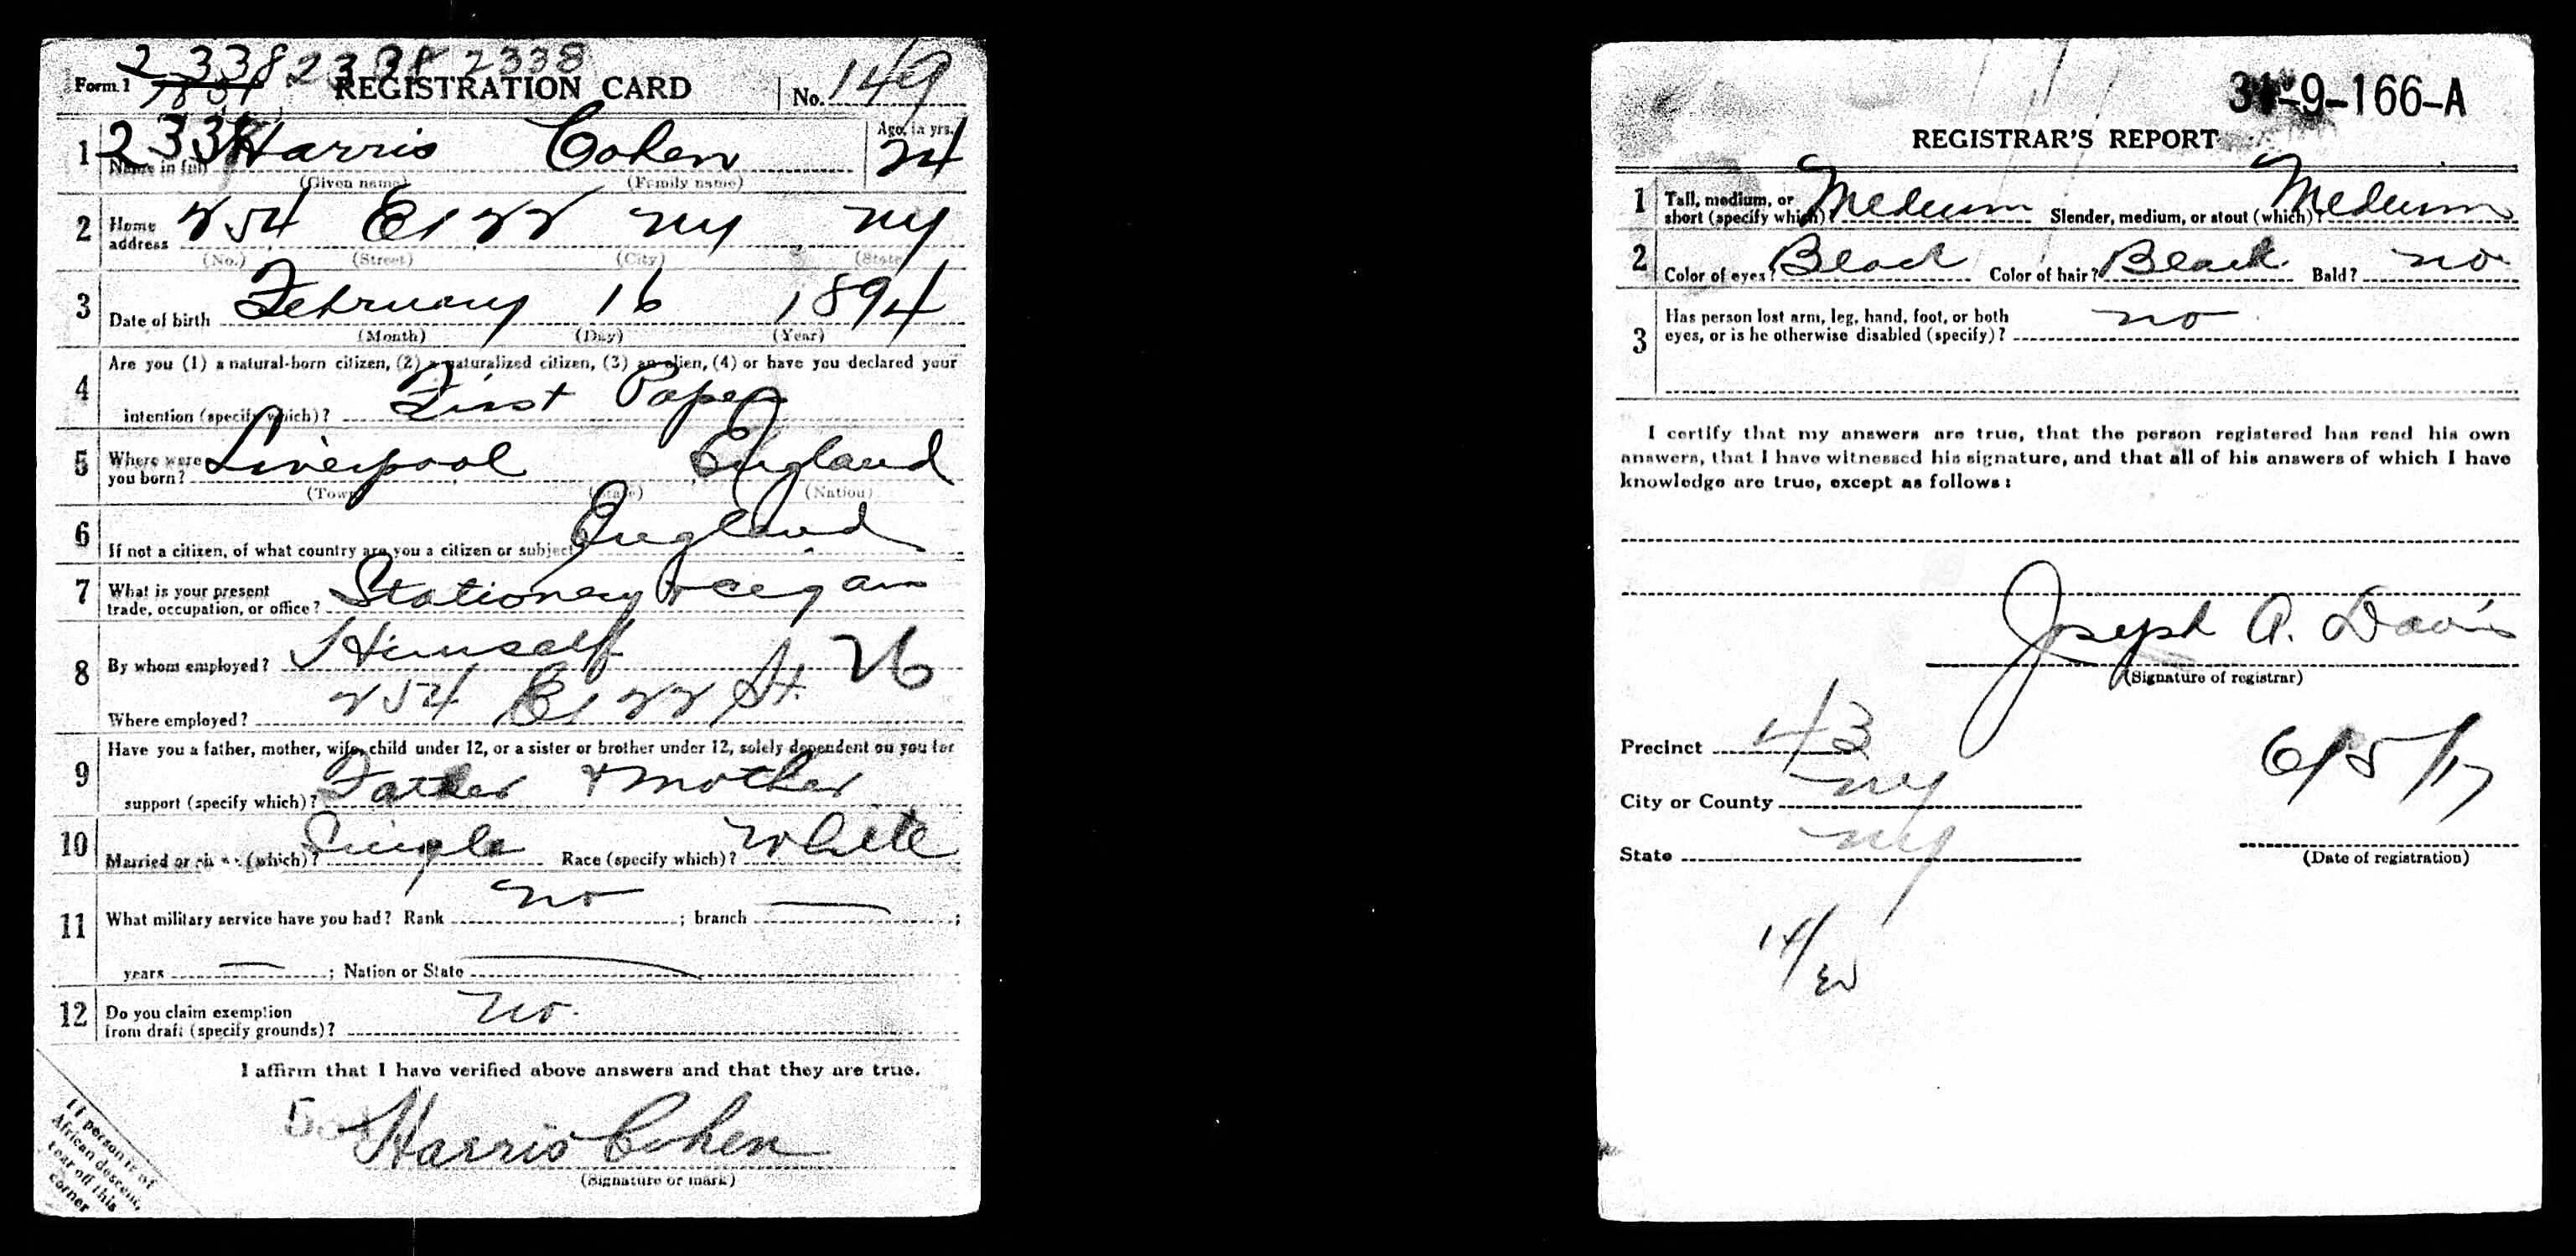 2338 2338 2338
Form 1 REGISTRATION CARD No. 149
2338
1 Name in full Harris Cohen Age, in yrs. 24
(Given name) (Family name)
2 Home address 254 E 122 NY NY
(No.) (Street) (City) (State)
3 Date of birth February 16 1894
(Month) (Day) (Year)
4 Are you (1) a natural-born citizen, (2) a naturalized citizen, (3) an alien, (4) or have you declared your
intention (specify which)? First Paper
5 Where were you born? Liverpool England
(Town) (State) (Nation)
6 If not a citizen, of what country are you a citizen or subject? England
7 What is your present trade, occupation, or office? Stationery + cegars
8 By whom employed? Himself 26
Where employed? 254 E 122 St.
9 Have you a father, mother, wife, child under 12, or a sister or brother under 12, solely dependent on you for
support (specify which)? Father + Mother
10 Married or single (which)? Single Race (specify which)? White
11 What military service have you had? Rank no ; branch — ;
years — ; Nation or State —
12 Do you claim exemption from draft (specify grounds)? no.
I affirm that I have verified above answers and that they are true.
Harris Cohen
(Signature or mark)
If person is of
African descent,
tear off this
corner
31-9-166-A
REGISTRAR'S REPORT
1 Tall, medium, or short (specify which)? Medium Slender, medium, or stout (which)? Medium
2 Color of eyes? Black Color of hair? Black Bald? no
3 Has person lost arm, leg, hand, foot, or both
eyes, or is he otherwise disabled (specify)? no
I certify that my answers are true, that the person registered has read his own
answers, that I have witnessed his signature, and that all of his answers of which I have
knowledge are true, except as follows:
Joseph A. Davis
(Signature of registrar)
Precinct 43
City or County NY 6/5/17
State NY
(Date of registration)